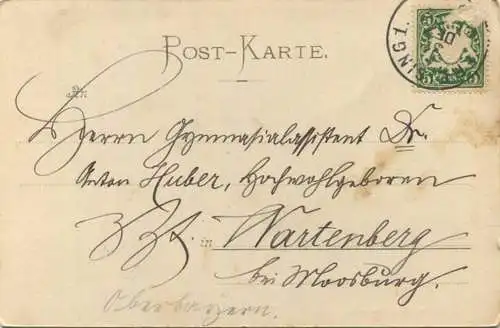 POST-KARTE.
An
Herrn Gymnasialassistent Dr.
Anton Huber, Hochwohlgeboren
z. Zt. in Wartenberg
bei Moosburg.
Oberbayern.
5 5
5 5